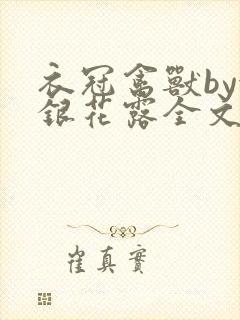 衣冠禽獸by
銀花露全文
崔真實